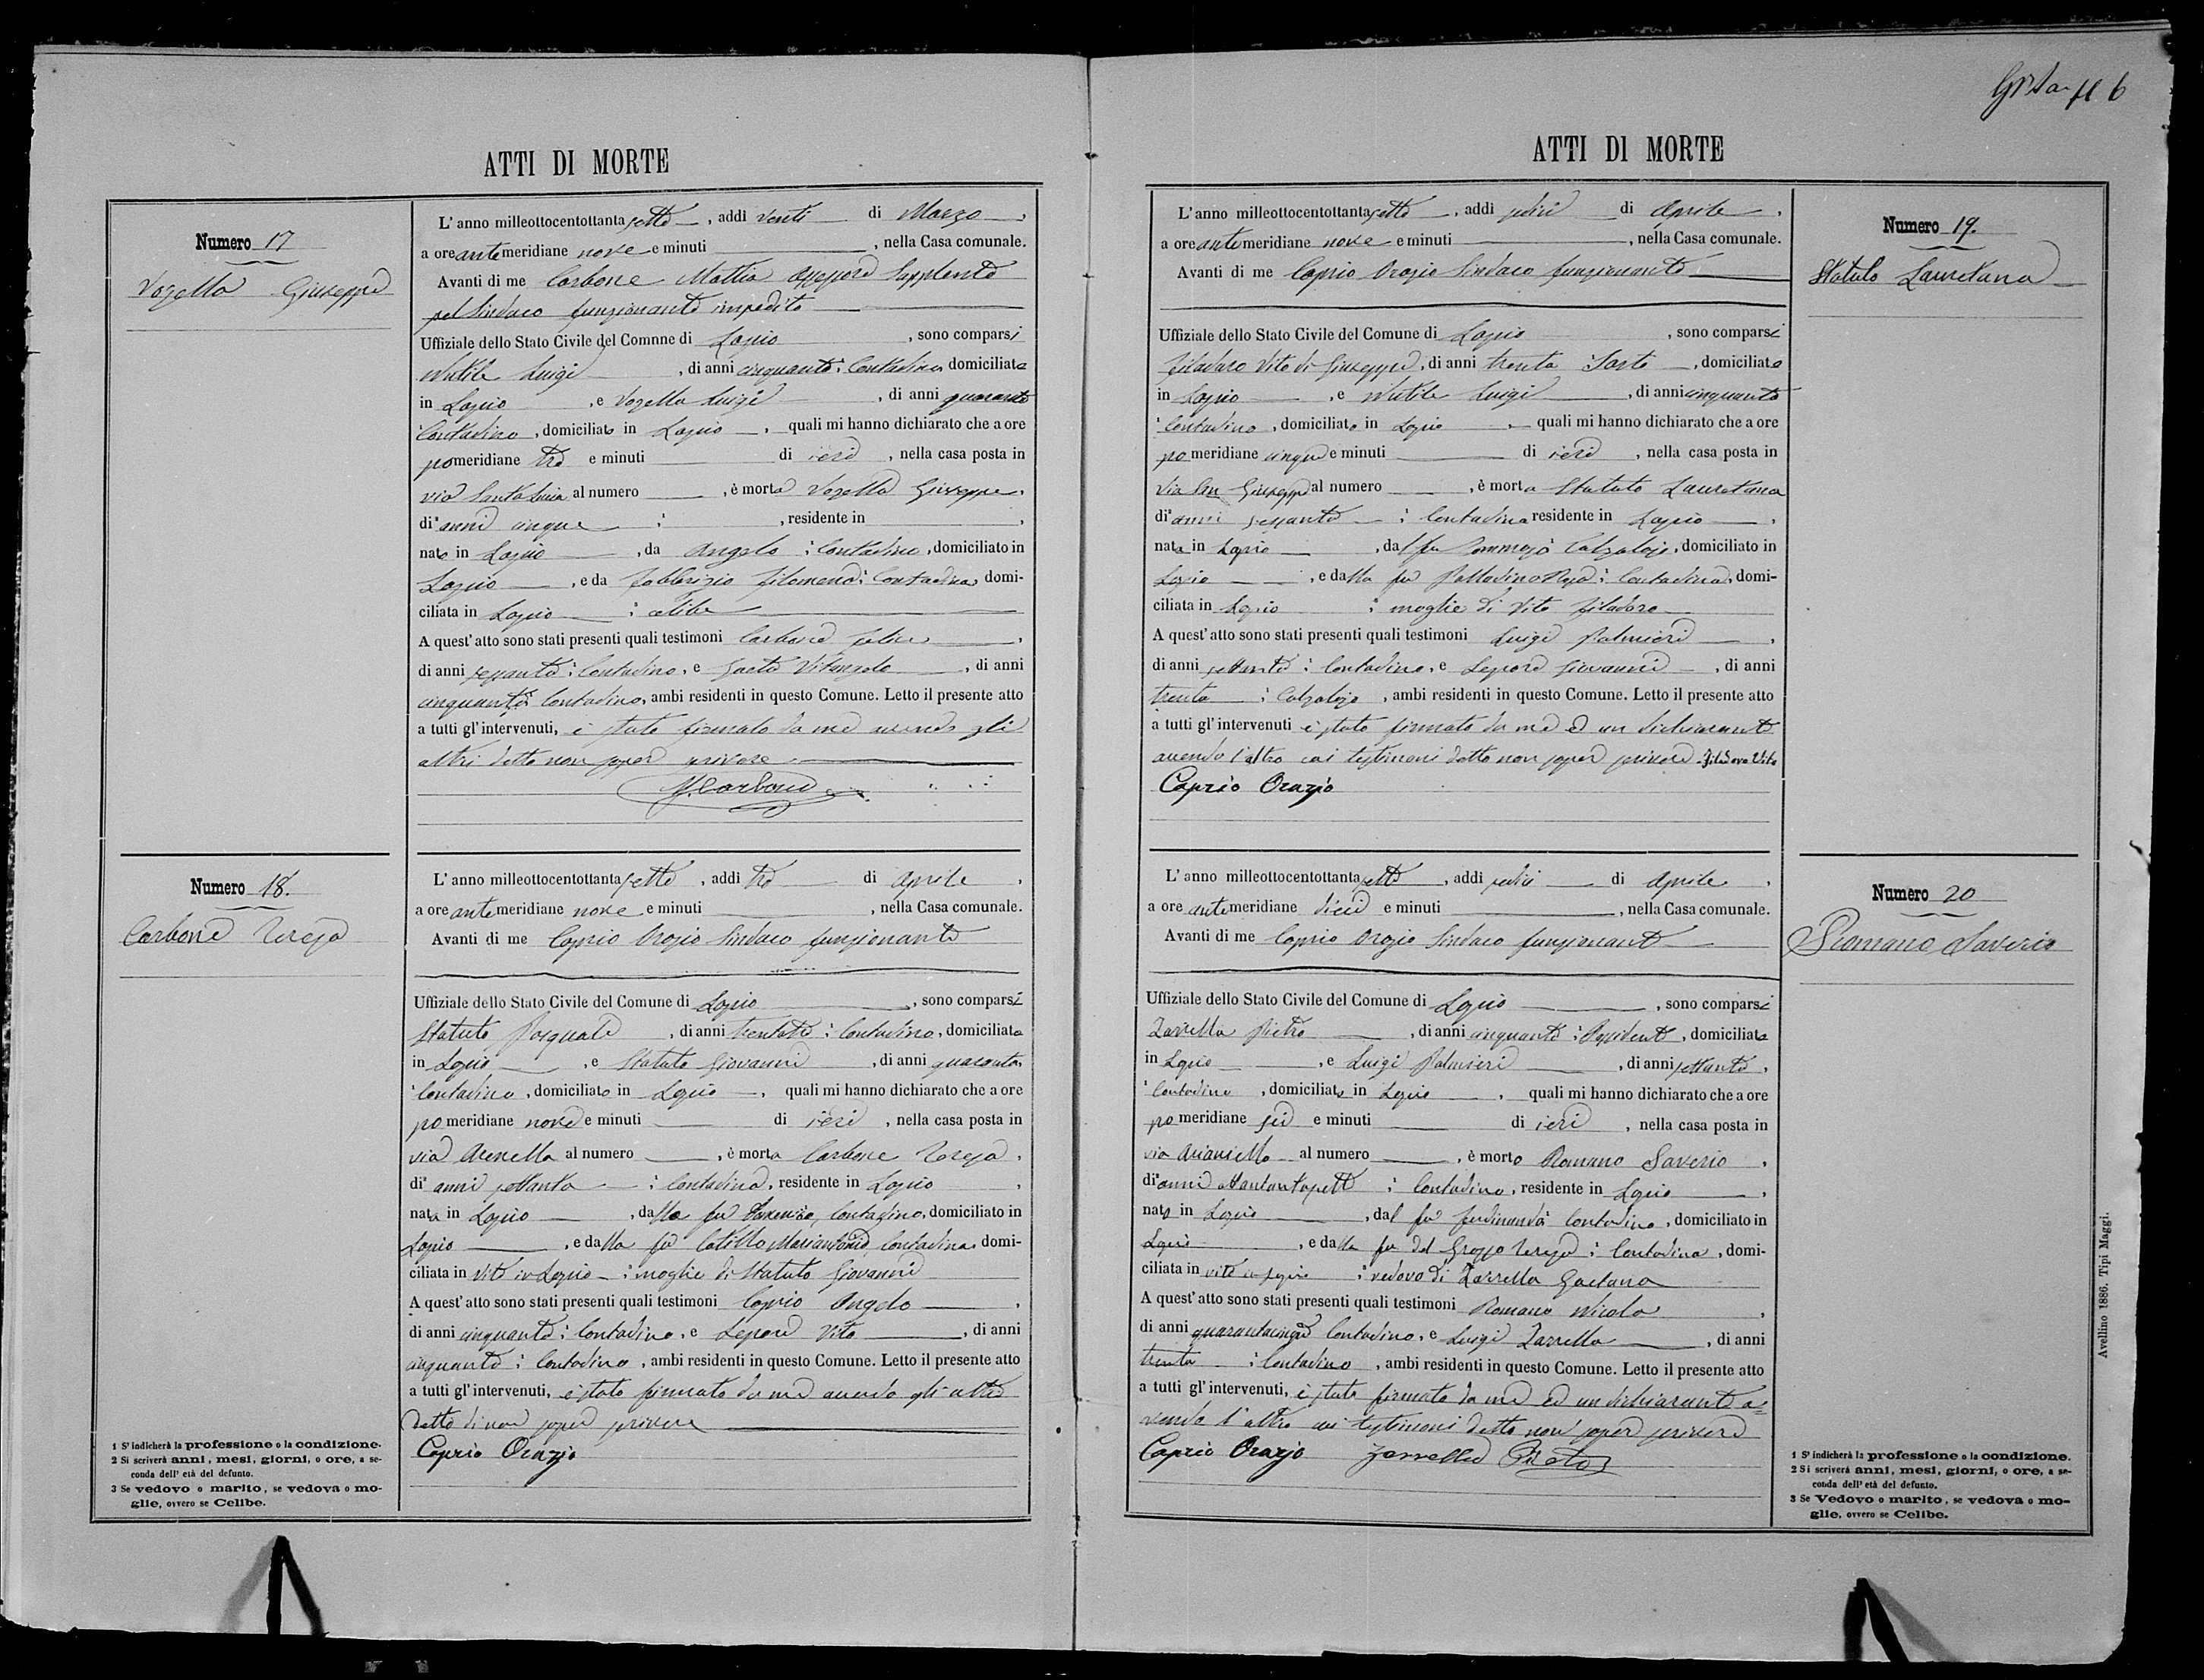 ATTI DI MORTE
Numero 17
Vozella Giuseppe
L' anno milleottocentottantasette, addi venti di Marzo,
a ore antemeridiane nove e minuti , nella Casa comunale.
Avanti di me Carbone Mattia Assessore Supplente
pel Sindaco funzionante impedito
Uffiziale dello Stato Civile del Comnne di Lapio , sono comparsi
Nutile Luigi , di anni cinquanta; Contadino domiciliato
in Lapio , e Vozella Luigi , di anni quaranta
Contadino, domiciliato in Lapio , quali mi hanno dichiarato che a ore
pomeridiane tre e minuti di ieri , nella casa posta in
via Santa Lucia al numero , è morto Vozella Giuseppe,
di anni cinque ; , residente in ,
nato in Lapio , da Angelo ; Contadino, domiciliato in
Lapio , e da Fabbrizio Filomena; Contadina, domi-
ciliata in Lapio ; celibe
A quest' atto sono stati presenti quali testimoni Carbone Felice ,
di anni sessanta; Contadino, e Gaeta Vitangelo , di anni
cinquanta; Contadino, ambi residenti in questo Comune. Letto il presente atto
a tutti gl' intervenuti, è stato firmato da me avendo gli
altri detto non saper scrivere
M Carbone
Numero 18.
Carbone Teresa
L' anno milleottocentottantasette , addi tre di Aprile ,
a ore antemeridiane nove e minuti , nella Casa comunale.
Avanti di me Caprio Orazio Sindaco funzionante
Uffiziale dello Stato Civile del Comune di Lapio , sono comparsi
Statuto Pasquale , di anni trentatre; Contadino, domiciliato
in Lapio , e Statuto Giovanni , di anni quaranta,
; Contadino, domiciliato in Lapio , quali mi hanno dichiarato che a ore
pomeridiane nove e minuti di ieri , nella casa posta in
via Arenella al numero , è morta Carbone Teresa ,
di anni settanta ; Contadina, residente in Lapio ,
nata in Lapio , dal fu , Contadino, domiciliato in
Lapio , e dalla fu Catillo Mariantonia, Contadina, domi-
ciliata in vita in Lapio ; moglie di Statuto Giovanni
A quest' atto sono stati presenti quali testimoni Caprio Angelo ,
di anni cinquanta; Contadino, e Lepore Vito , di anni
cinquanta; Contadino, ambi residenti in questo Comune. Letto il presente atto
a tutti gl' intervenuti, è stato firmato da me avendo gli altri
detto di non saper scrivere
Caprio Orazio
1 S' indicherà la professione o la condizione.
2 Si scriverà anni, mesi, giorni, o ore, a se-
conda dell' età del defunto.
3 Se vedovo o marito, se vedova o mo-
glie, ovvero se Celibe.
6
ATTI DI MORTE
Numero 19.
Statuto Lauretana
L' anno milleottocentottantasette , addi sedici di Aprile ,
a ore antemeridiane nove e minuti , nella Casa comunale.
Avanti di me Caprio Orazio Sindaco funzionante
Uffiziale dello Stato Civile del Comune di Lapio , sono comparsi
Filadoro Vito di Giuseppe, di anni trenta ; Sarto , domiciliato
in Lapio , e Nutile Luigi , di anni cinquanta
; Contadino, domiciliato in Lapio , quali mi hanno dichiarato che a ore
pomeridiane cinque e minuti di ieri , nella casa posta in
via San Giuseppe al numero , è morta Statuto Lauretana
di anni sessanta ; Contadina residente in Lapio ,
nata in Lapio , dal fu Tommaso Calzolaio, domiciliato in
Lapio , e dalla fu Palladino Rosa; Contadina, domi-
ciliata in Lapio ; moglie di Vito Filadoro
A quest' atto sono stati presenti quali testimoni Luigi Palmieri ,
di anni settanta; Contadino, e Lepore Giovanni , di anni
trenta ; Calzolaio , ambi residenti in questo Comune. Letto il presente atto
a tutti gl' intervenuti è stato firmato da me e un dichiarante
avendo l'altro coi testimoni detto non saper scrivere. Filadoro Vito
Caprio Orazio
Numero 20
Romano Saverio
L' anno milleottocentottantasette , addi sedici di Aprile ,
a ore antemeridiane dieci e minuti , nella Casa comunale.
Avanti di me Caprio Orazio Sindaco funzionante
Uffiziale dello Stato Civile del Comune di Lapio , sono comparsi
Zarrella Pietro , di anni cinquanta; Possidente, domiciliato
in Lapio , e Luigi Palmieri , di anni settanta,
; Contadino , domiciliato in Lapio , quali mi hanno dichiarato che a ore
pomeridiane sei e minuti di ieri , nella casa posta in
via Arianiello al numero , è morto Romano Saverio ,
di anni ottantasette ; Contadino, residente in Lapio ,
nato in Lapio , dal fu Ferdinando Contadino, domiciliato in
Lapio , e dalla fu del Grosso Teresa; Contadina, domi-
ciliata in vita in Lapio ; vedovo di Zarrella Gaetana
A quest' atto sono stati presenti quali testimoni Romano Nicola ,
di anni quarantacinque Contadino, e Luigi Zarrella , di anni
trenta ; Contadino , ambi residenti in questo Comune. Letto il presente atto
a tutti gl' intervenuti, è stato firmato da me ed un dichiarante a=
vendo l'altro coi testimoni detto non saper scrivere
Caprio Orazio Zarrella Pietro
1 S' indicherà la professione o la condizione.
2 Si scriverà anni, mesi, giorni, o ore, a se-
conda dell' età del defunto.
3 Se Vedovo o marito, se vedova o mo-
glie, ovvero se Celibe.
Avellino 1886. Tipi Maggi.